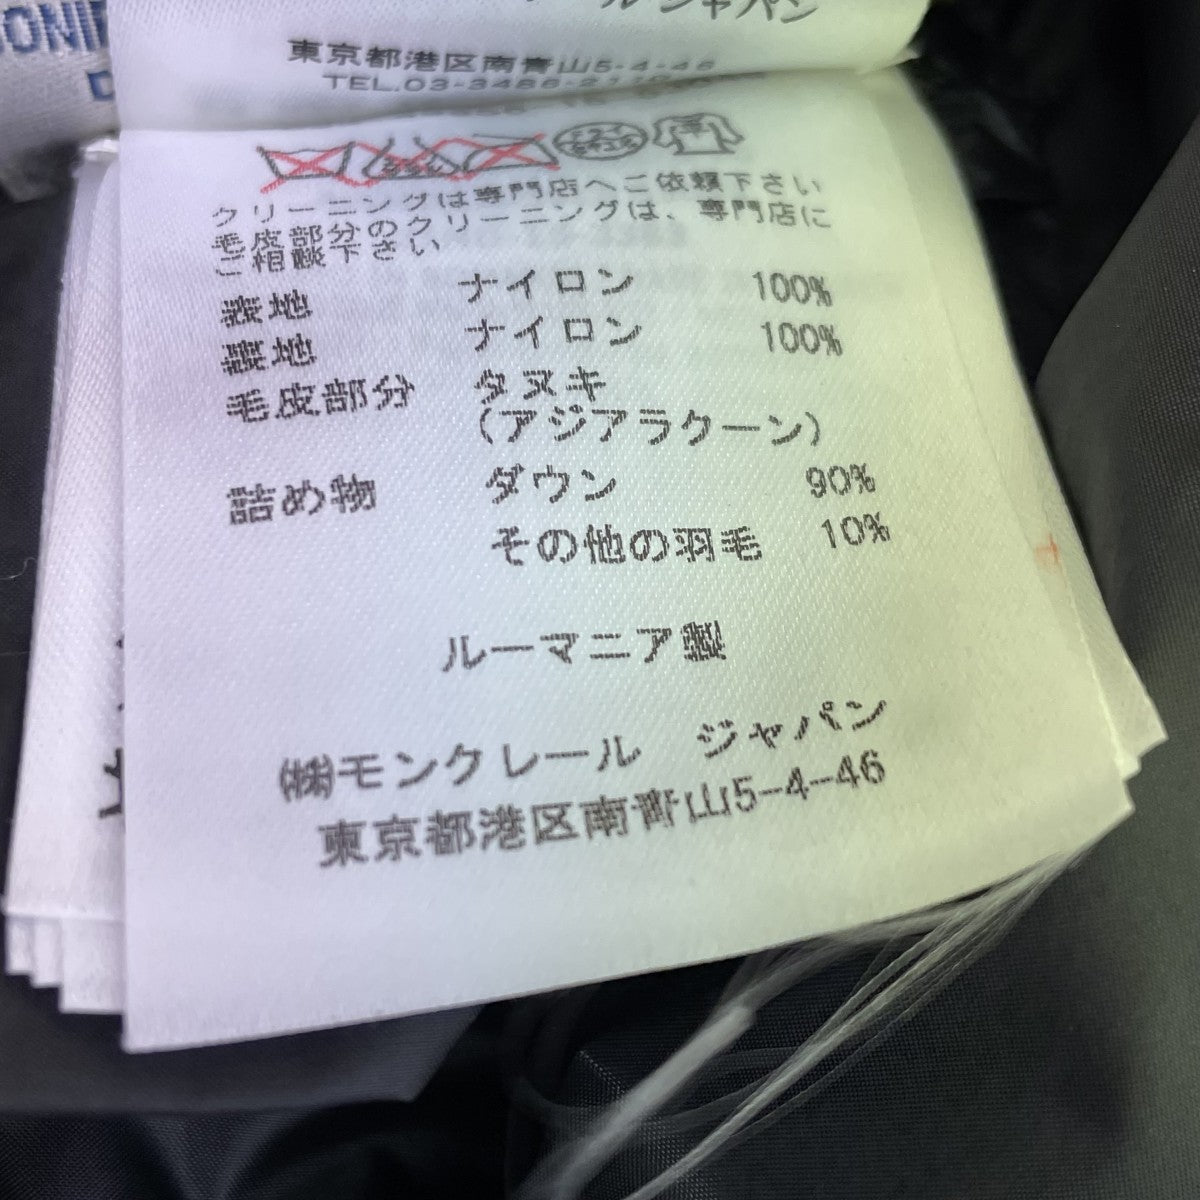 ルジャパン
東京都港区南青山5-4-46
TEL.03-3486-
クリーニングは専門店へご依頼下さい
毛皮部分のクリーニングは、専門店に
ご相談下さい
表地 ナイロン 100%
裏地 ナイロン 100%
毛皮部分 タヌキ
(アジアラクーン)
詰め物 ダウン 90%
その他の羽毛 10%
ルーマニア製
㈱モンクレール ジャパン
東京都港区南青山5-4-46